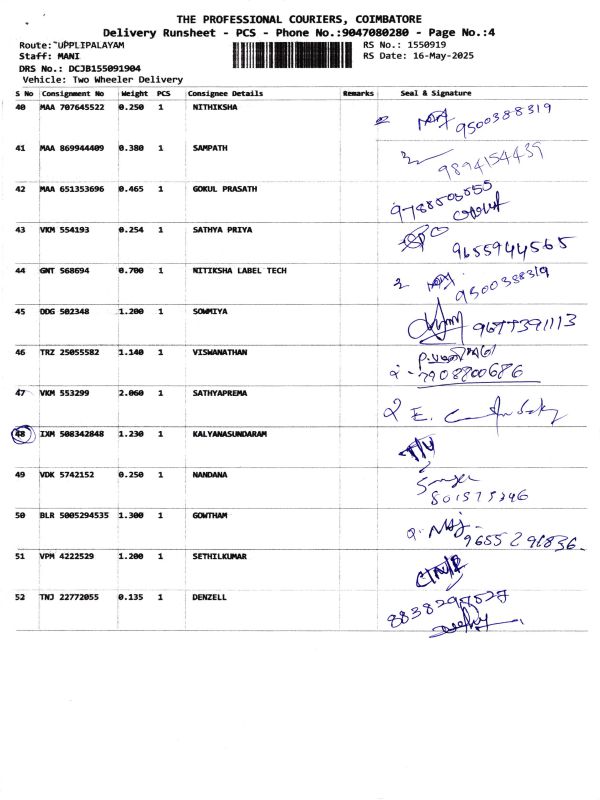 THE PROFESSIONAL COURIERS, COIMBATORE
Delivery Runsheet - PCS - Phone No.:9047080280 - Page No.:4
Route: UPPLIPALAYAM RS No.: 1550919
Staff: MANI RS Date: 16-May-2025
DRS No.: DCJB155091904
Vehicle: Two Wheeler Delivery
S No Consignment No Weight PCS Consignee Details Remarks Seal & Signature
40 MAA 707645522 0.250 1 NITHIKSHA 9500388319
41 MAA 869944409 0.380 1 SAMPATH 9894154439
42 MAA 651353696 0.465 1 GOKUL PRASATH
43 VKM 554193 0.254 1 SATHYA PRIYA 9655944565
44 GNT 568694 0.700 1 NITIKSHA LABEL TECH 9500388319
45 ODG 502348 1.200 1 SOWMIYA 9677391113
46 TRZ 25055582 1.140 1 VISWANATHAN
47 VKM 553299 2.060 1 SATHYAPREMA
48 IXM 508342848 1.230 1 KALYANASUNDARAM
49 VDK 5742152 0.250 1 NANDANA
50 BLR 5005294535 1.300 1 GOWTHAM
51 VPM 4222529 1.200 1 SETHILKUMAR
52 TNJ 22772055 0.135 1 DENZELL